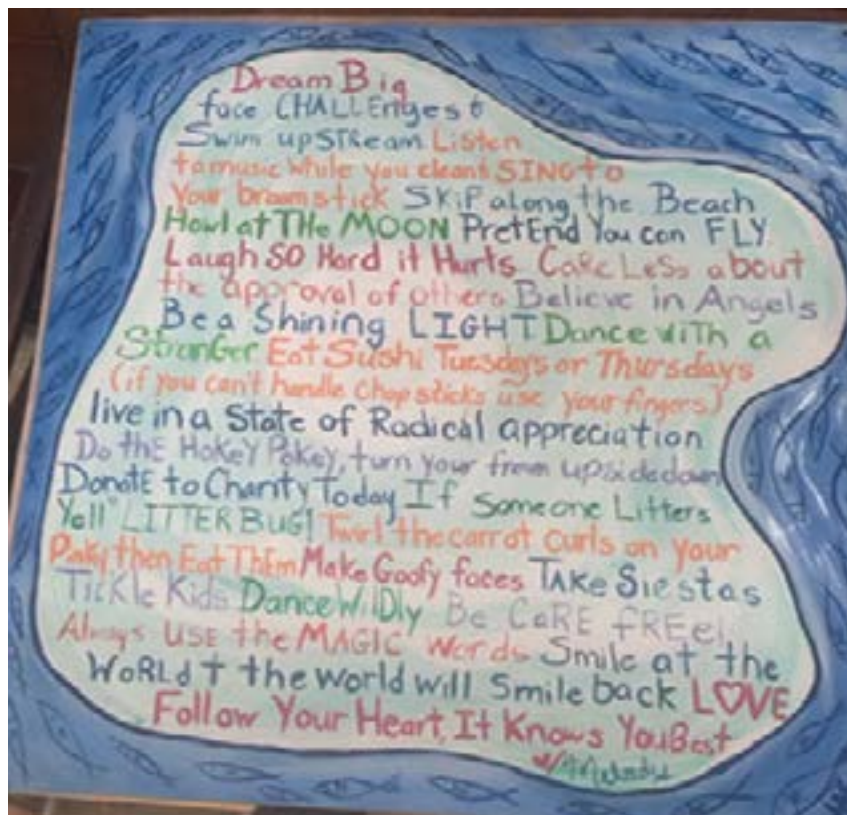 Dream Big
face CHALLEnges &
Swim upSTReam Listen
to music while you clean & SING to
Your broomstick SKiP along the Beach
Howl at THe MOON PretEnd You can FLY
Laugh SO Hard it Hurts CaRe LeSs about
the approval of others Believe in Angels
Be a Shining LIGHT Dance wiTh a
StranGer Eat Sushi Tuesdays or Thursdays
(if you can't handle chop sticks use your fingers)
live in a State of Radical appreciation
Do thE HoKeY PoKey, turn your frown upside down
DonatE to Charity Today If Someone Litters
Yell "LITTER BUG! Twirl the carrot curls on your
then Eat ThEm Make Goofy faces TAKe Siestas
TicKle Kids Dance WilDly Be CaRE fREe!
Always USE the MAGIC Words Smile at the
WoRLd & the world will Smile back LOVE
Follow Your Heart, It Knows You Best